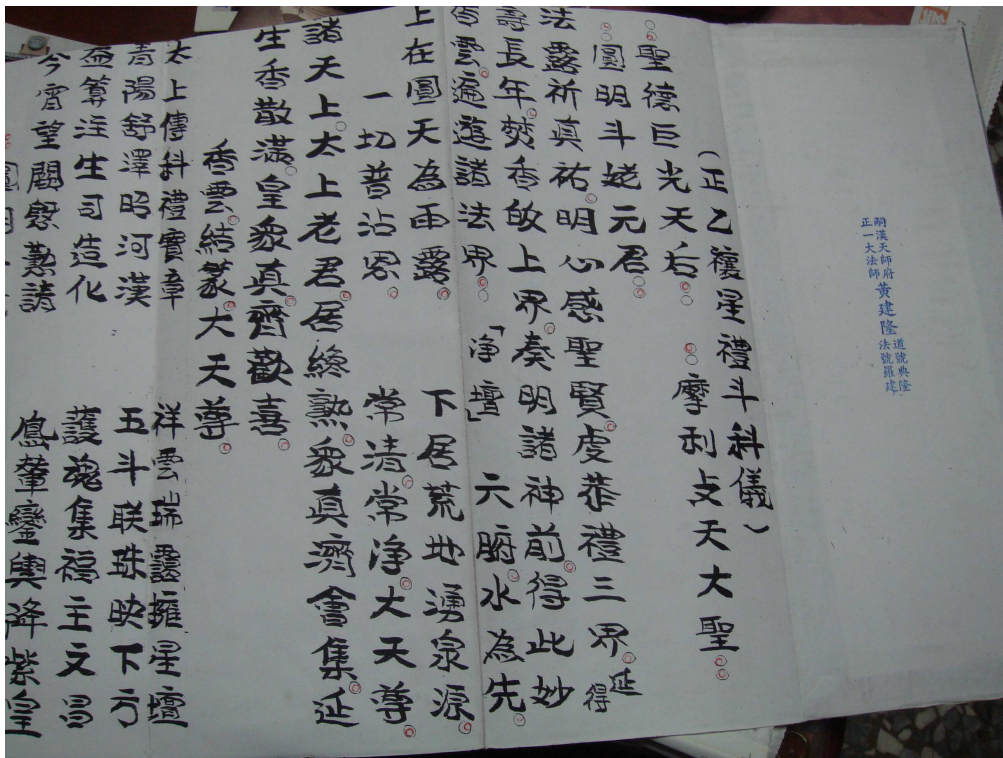 嗣漢天師府
正一大法師
黃建隆
道號典隆
法號羅建
(正乙禳星禮斗科儀)
聖德巨光天后 摩利支天大聖
圓明斗姥元君
法露祈真祐明心感聖賢虔恭禮三界延得
壽長年焚香啟上界奏明諸神前得此妙
雲遍遊諸法界「净壇」 六腑水為先
上在圓天為雨露 下居荒地湧泉源
一切普沾恩 常清常净大天尊
諸天上太上老君居總熟眾真濟會集延
生香散滿皇眾真齊歡喜
香雲結篆大天尊
太上傳科禮寶章 祥雲瑞靄擁星壇
青陽舒澤昭河漢 五斗联珠映下方
益算注生司造化 護魂集福主文昌
今宵望闕慇懃請 鳳輦鑾輿降紫皇